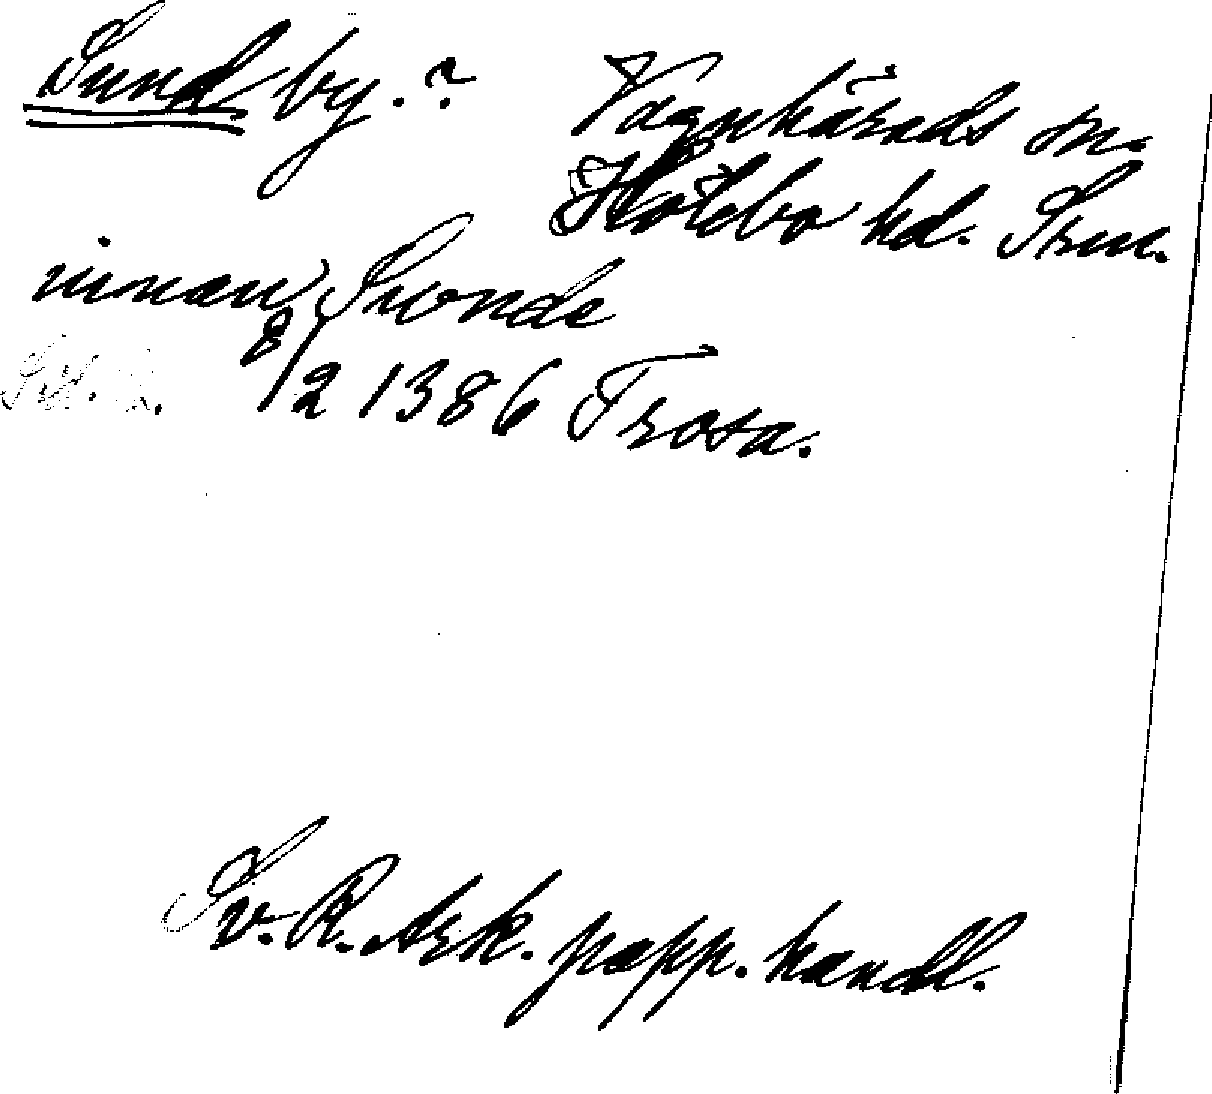 Sundby.?
Vagnhärads sn.
Hölebo hd. Srm.
innan Sunde
8/2 1386 Trosa.
Sv. R. Ark. papp. handl.